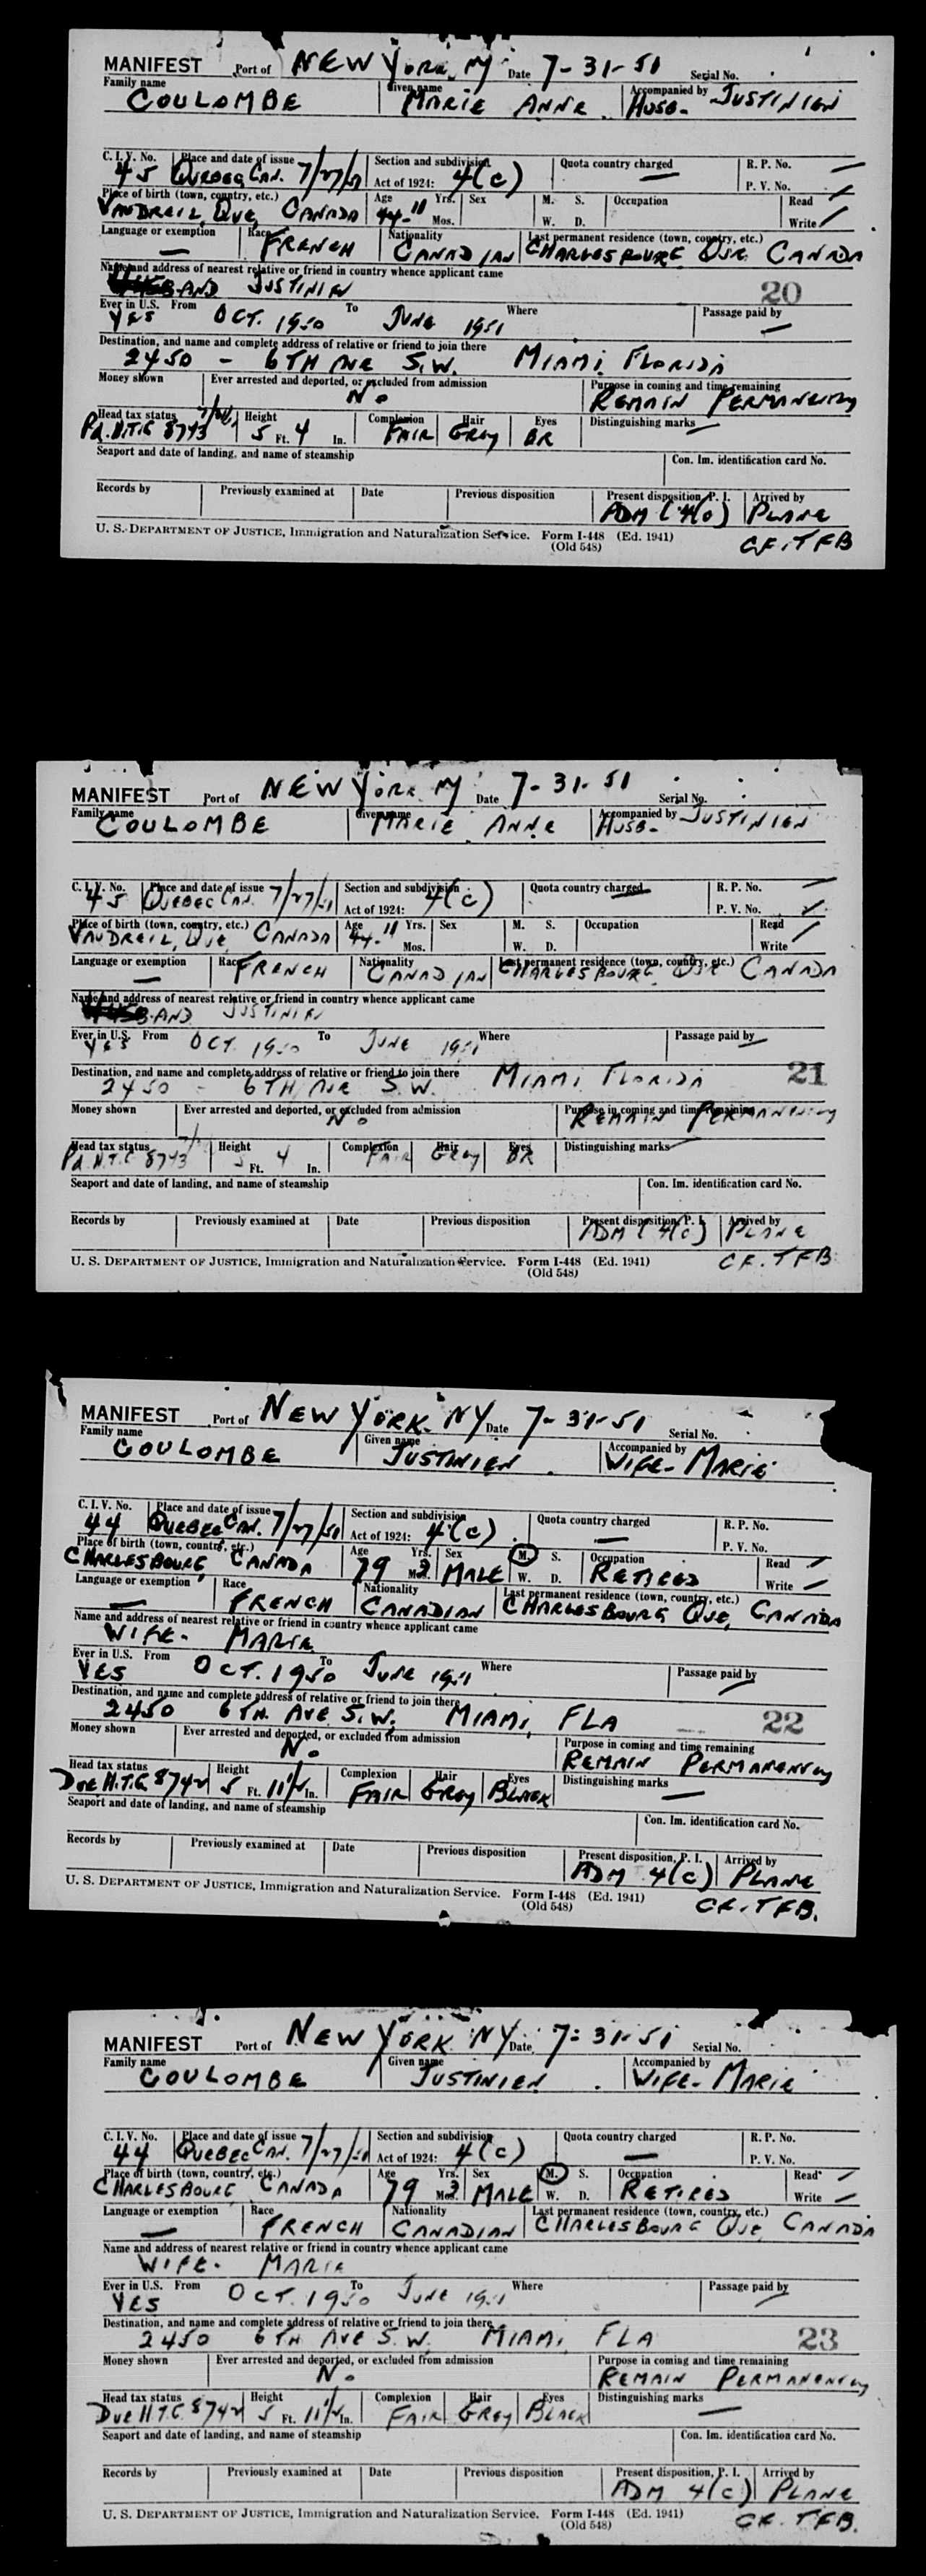 MANIFEST Port of NEW YORK, NY Date 7-31-51 Serial No.
Family name Given name Accompanied by
COULOMBE MARIE ANNE HUSB- JUSTINIEN
C. I. V. No. Place and date of issue Section and subdivision Quota country charged R. P. No.
45 QUEBEC CAN. 7/27/51 Act of 1924: 4(c) — P. V. No.
Place of birth (town, country, etc.) Age Yrs. Sex M. S. Occupation Read
VAUDREIL, QUE, CANADA 44 11 Mos. W. D. Write
Language or exemption Race Nationality Last permanent residence (town, country, etc.)
— FRENCH CANADIAN CHARLESBOURG QUE. CANADA
Name and address of nearest relative or friend in country whence applicant came
HUSBAND JUSTINIEN 20
Ever in U.S. From To Where Passage paid by
YES OCT. 1950 JUNE 1951 —
Destination, and name and complete address of relative or friend to join there
2450 - 6TH AVE S.W. MIAMI, FLORIDA
Money shown Ever arrested and deported, or excluded from admission Purpose in coming and time remaining
No REMAIN PERMANENTLY
Head tax status Height Complexion Hair Eyes Distinguishing marks —
Pd. H.T.C 8743 5 Ft. 4 In. FAIR GREY BR
Seaport and date of landing, and name of steamship Con. Im. identification card No.
Records by Previously examined at Date Previous disposition Present disposition, P. I. Arrived by
ADM (4(c) PLANE
U. S. DEPARTMENT OF JUSTICE, Immigration and Naturalization Service. Form I-448 (Ed. 1941) CF. TFB
(Old 548)
MANIFEST Port of NEW YORK NY Date 7-31-51 Serial No.
Family name Given name Accompanied by
COULOMBE MARIE ANNE HUSB- JUSTINIEN
C. I. V. No. Place and date of issue Section and subdivision Quota country charged R. P. No.
45 QUEBEC CAN. 7/27/51 Act of 1924: 4(c) — P. V. No.
Place of birth (town, country, etc.) Age Yrs. Sex M. S. Occupation Read
VAUDREIL, QUE, CANADA 44 11 Mos. W. D. Write
Language or exemption Race Nationality Last permanent residence (town, country, etc.)
— FRENCH CANADIAN CHARLESBOURG QUE. CANADA
Name and address of nearest relative or friend in country whence applicant came
HUSBAND JUSTINIEN
Ever in U.S. From To Where Passage paid by
YES OCT. 1950 JUNE 1951 —
Destination, and name and complete address of relative or friend to join there
2450 - 6TH AVE S.W. MIAMI, FLORIDA 21
Money shown Ever arrested and deported, or excluded from admission Purpose in coming and time remaining
No REMAIN PERMANENTLY
Head tax status Height Complexion Hair Eyes Distinguishing marks —
Pd. H.T.C 8743 5 Ft. 4 In. FAIR GREY BR
Seaport and date of landing, and name of steamship Con. Im. identification card No.
Records by Previously examined at Date Previous disposition Present disposition, P. I. Arrived by
ADM (4(c) PLANE
U. S. DEPARTMENT OF JUSTICE, Immigration and Naturalization Service. Form I-448 (Ed. 1941) CF. TFB
(Old 548)
MANIFEST Port of NEW YORK NY Date 7-31-51 Serial No.
Family name Given name Accompanied by
COULOMBE JUSTINIEN WIFE- MARIE
C. I. V. No. Place and date of issue Section and subdivision Quota country charged R. P. No.
44 QUEBEC CAN. 7/27/51 Act of 1924: 4(c) — P. V. No.
Place of birth (town, country, etc.) Age Yrs. Sex M. S. Occupation Read
CHARLESBOURG, CANADA 79 Mos. 3 MALE W. D. RETIRED Write
Language or exemption Race Nationality Last permanent residence (town, country, etc.)
— FRENCH CANADIAN CHARLESBOURG QUE, CANADA
Name and address of nearest relative or friend in country whence applicant came
WIFE- MARIE
Ever in U.S. From To Where Passage paid by
YES OCT. 1950 JUNE 1951 —
Destination, and name and complete address of relative or friend to join there
2450 6TH AVE S.W. MIAMI, FLA 22
Money shown Ever arrested and deported, or excluded from admission Purpose in coming and time remaining
No REMAIN PERMANENTLY
Head tax status Height Complexion Hair Eyes Distinguishing marks
Due H.T.C. 8742 5 Ft. 11½ In. FAIR GREY BLACK —
Seaport and date of landing, and name of steamship Con. Im. identification card No.
Records by Previously examined at Date Previous disposition Present disposition, P. I. Arrived by
ADM 4(c) PLANE
U. S. DEPARTMENT OF JUSTICE, Immigration and Naturalization Service. Form I-448 (Ed. 1941) CF. TFB.
(Old 548)
MANIFEST Port of NEW YORK NY Date 7-31-51 Serial No.
Family name Given name Accompanied by
COULOMBE JUSTINIEN WIFE- MARIE
C. I. V. No. Place and date of issue Section and subdivision Quota country charged R. P. No.
44 QUEBEC CAN. 7/27/51 Act of 1924: 4(c) — P. V. No.
Place of birth (town, country, etc.) Age Yrs. Sex M. S. Occupation Read
CHARLESBOURG, CANADA 79 Mos. 3 MALE W. D. RETIRED Write
Language or exemption Race Nationality Last permanent residence (town, country, etc.)
— FRENCH CANADIAN CHARLESBOURG QUE, CANADA
Name and address of nearest relative or friend in country whence applicant came
WIFE- MARIE
Ever in U.S. From To Where Passage paid by
YES OCT. 1950 JUNE 1951 —
Destination, and name and complete address of relative or friend to join there
2450 6TH AVE S.W. MIAMI, FLA 23
Money shown Ever arrested and deported, or excluded from admission Purpose in coming and time remaining
No REMAIN PERMANENTLY
Head tax status Height Complexion Hair Eyes Distinguishing marks
Due H.T.C. 8742 5 Ft. 11½ In. FAIR GREY BLACK —
Seaport and date of landing, and name of steamship Con. Im. identification card No.
Records by Previously examined at Date Previous disposition Present disposition, P. I. Arrived by
ADM 4(c) PLANE
U. S. DEPARTMENT OF JUSTICE, Immigration and Naturalization Service. Form I-448 (Ed. 1941) CF. TFB.
(Old 548)